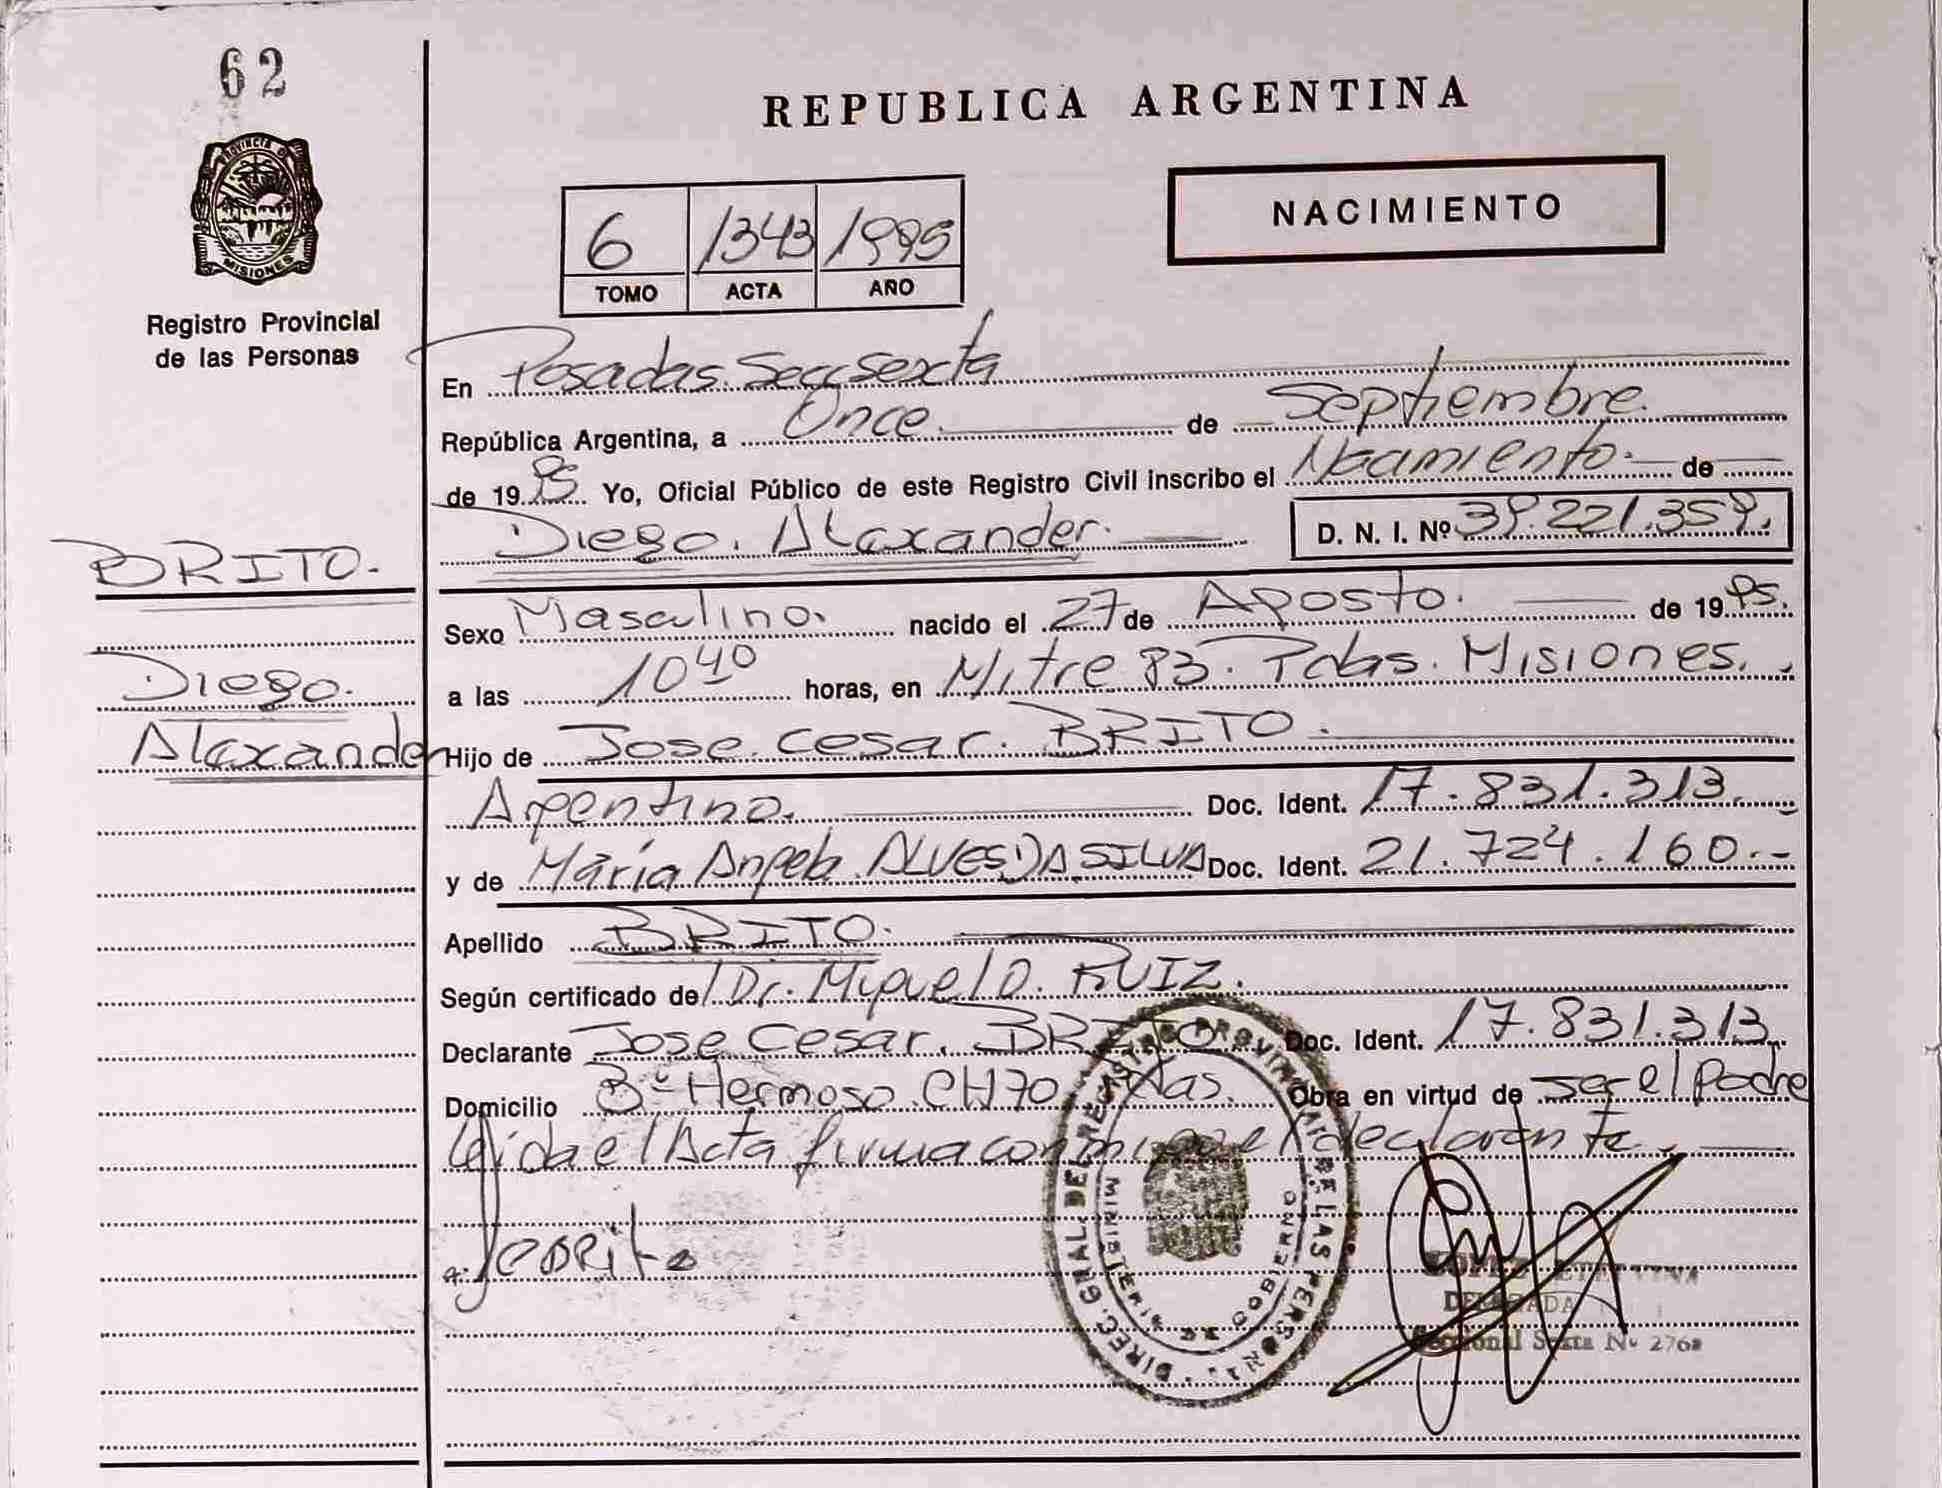 62
REPUBLICA ARGENTINA
PROVINCIA DE
MISIONES
Registro Provincial
de las Personas
NACIMIENTO
6 1343 1995
TOMO ACTA AÑO
En Posadas. Secc sexta
República Argentina, a Once. de Septiembre.
de 1995 Yo, Oficial Público de este Registro Civil inscribo el Nacimiento. de
Diego. Alexander. D. N. I. Nº 39.221.359.
BRITO.
Diego.
Alexander
Sexo Masculino. nacido el 27 de Agosto. de 1995.
a las 10 40 horas, en Mitre 83. Pdas. Misiones.
Hijo de Jose. Cesar. BRITO.
Argentino. Doc. Ident. 17.831.313.
y de María Angela ALVES DA SILVA Doc. Ident. 21.724.160.-
Apellido BRITO.
Según certificado del Dr. Miguel O. RUIZ.
Declarante Jose Cesar. BRITO Doc. Ident. 17.831.313.
Domicilio Bº Hermoso. CH70 Pdas. Obra en virtud de ser el padre
Leída el Acta firma conmigo el declarante.
DIREC. GRAL. DEL REGISTRO PROVINCIAL DE LAS PERSONAS
MINISTERIO DE GOBIERNO
DELEGADA
Seccional Sexta Nº 2762